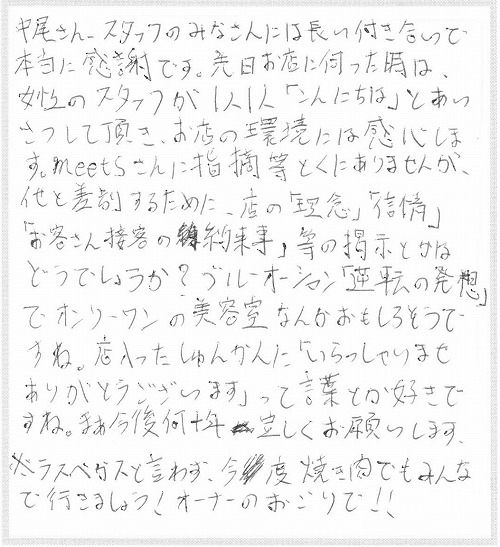 中尾さん、スタッフのみなさんには長い付き合いで
本当に感謝です。先日お店に伺った時は、
女性のスタッフが1人1人「こんにちは」とあい
さつして頂き、お店の環境には感心しま
す。meetsさんに指摘等とくにありませんが、
他と差別するために、店の「理念」「信情」
「お客さん接客の約束事」等の掲示とかは
どうでしょうか？ブルーオーシャン「逆転の発想」
でオンリーワンの美容室なんかおもしろそうで
すね。店入ったしゅんかんに「いらっしゃいませ
ありがとうございます」って言葉とか好きで
すね。まぁ今後何十年 宜しくお願いします。
※ラスベガスと言わず、今度焼き肉でもみんな
で行きましょう！オーナーのおごりで！！